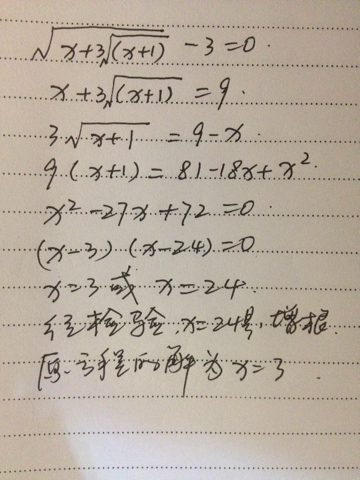 √(x+3√(x+1)) -3=0.
x+3√(x+1) =9.
3√x+1 =9-x.
9(x+1)=81-18x+x².
x²-27x+72=0.
(x-3)(x-24)=0
x=3或x=24.
经检验.x=24是增根
原方程的解为x=3.